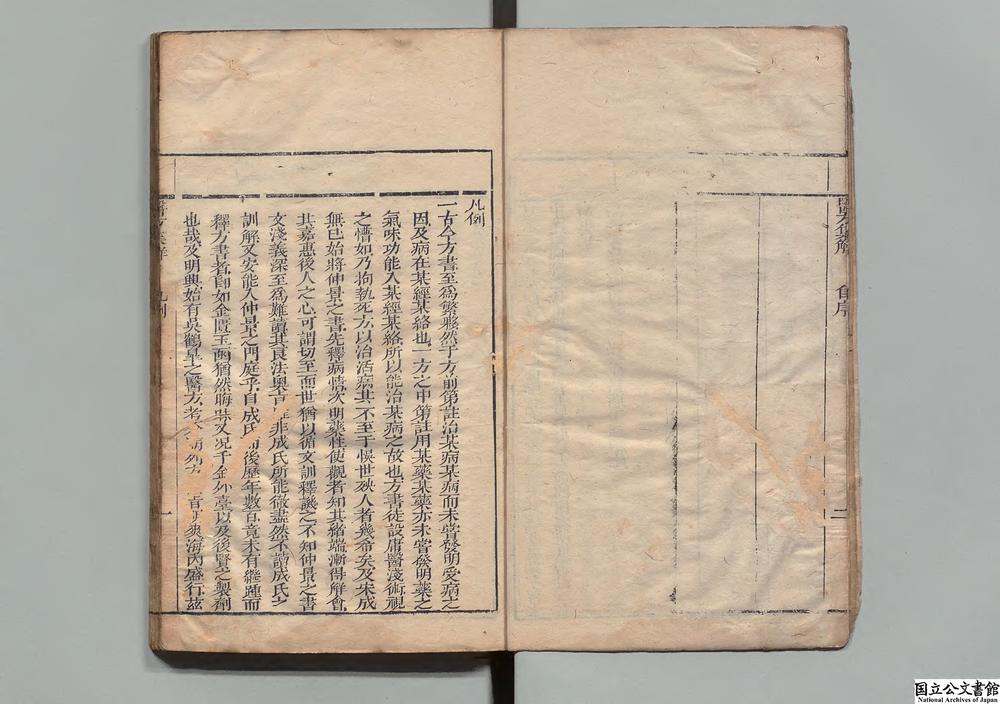 醫方集解 自序 二
凡例
一古今方書至爲繁夥然于方前第註治某病某病而未嘗發明受病之
因及病在某經某絡也一方之中第註用某藥某藥亦未嘗發明藥之
氣味功能入某經某絡所以能治某病之故也方書徒設庸醫淺術視
之懵如乃拘執死方以治活病其不至于悞世殃人者幾希矣及宋成
無已始將仲景之書先釋病情次明藥性使觀者知其緒端漸得解會
其嘉惠後人之心可謂切至而世猶以循文訓釋譏之不知仲景之書
文淺義深至爲難讀其良法奧旨雖非成氏所能徹盡然不讀成氏之
訓解又安能入仲景之門庭乎自成氏而後歷年數百竟未有繼踵而
釋方書者卽如金匱玉函猶然晦昧又况千金外臺以及後賢之製劑
也哉及明興始有吳鶴皋之醫方考 列 海內盛行玆
醫方集解 凡例 一
国立公文書館
National Archives of Japan